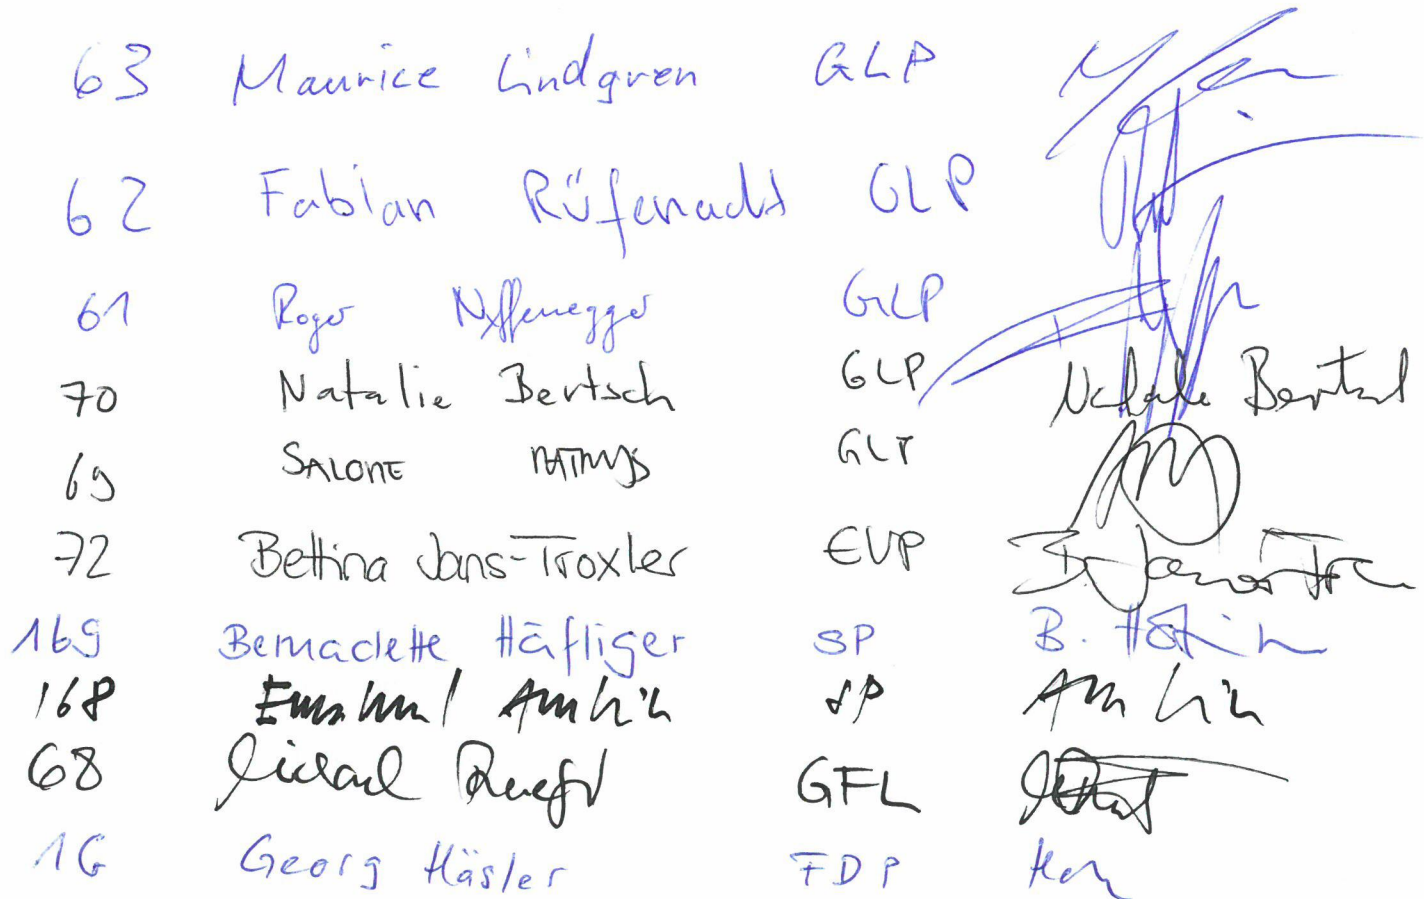 63 Maurice Lindgren GLP
62 Fabian Rüfenacht GLP
61 Roger Nyffenegger GLP
70 Natalie Bertsch GLP Natalie Bertsch
69 SALOME MATHYS GLP
72 Bettina Jans-Troxler EVP B. Jans-Tro
169 Bernadette Häfliger SP B. Häfli
168 Emanuel Amrhein SP Amrhein
68 Michael Ruefer GFL
16 Georg Häsler FDP